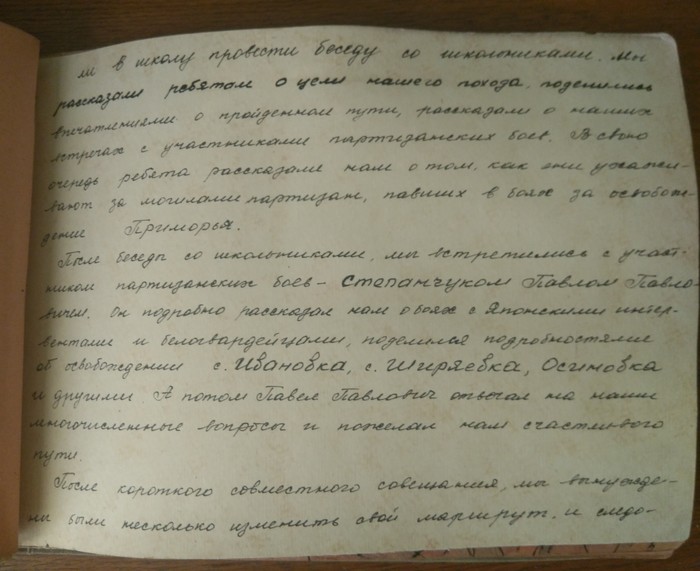 ли в школу провести беседу со школьниками. Мы
рассказали ребятам о цели нашего похода, поделились
впечатлениями о пройденном пути, рассказали о наших
встречах с участниками партизанских боев. В свою
очередь ребята рассказали нам о том, как они ухажи-
вают за могилами партизан, павших в боях за освобож-
дение Приморья.
После беседы со школьниками, мы встретились с участ-
ником партизанских боев – Степанчуком Павлом Павло-
вичем. Он подробно рассказал нам о боях с Японскими интер-
вентами и белогвардейцами, поделился подробностями
об освобождении с. Ивановка, с. Ширяевка, Осиновка
и другими. А потом Павел Павлович отвечал на наши
многочисленные вопросы и пожелал нам счастливого
пути.
После короткого совместного совещания, мы вынужде-
ны были несколько изменить свой маршрут. и следо-